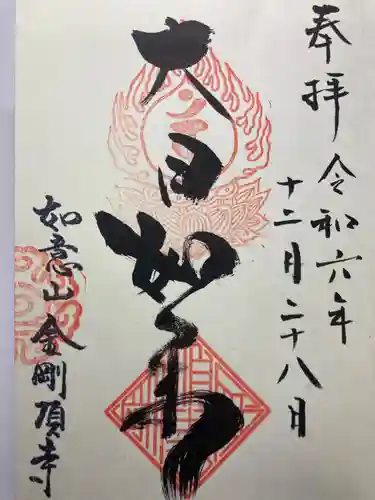 奉拝
令和六年
十二月二十八月
大日如来
如意山金剛頂寺